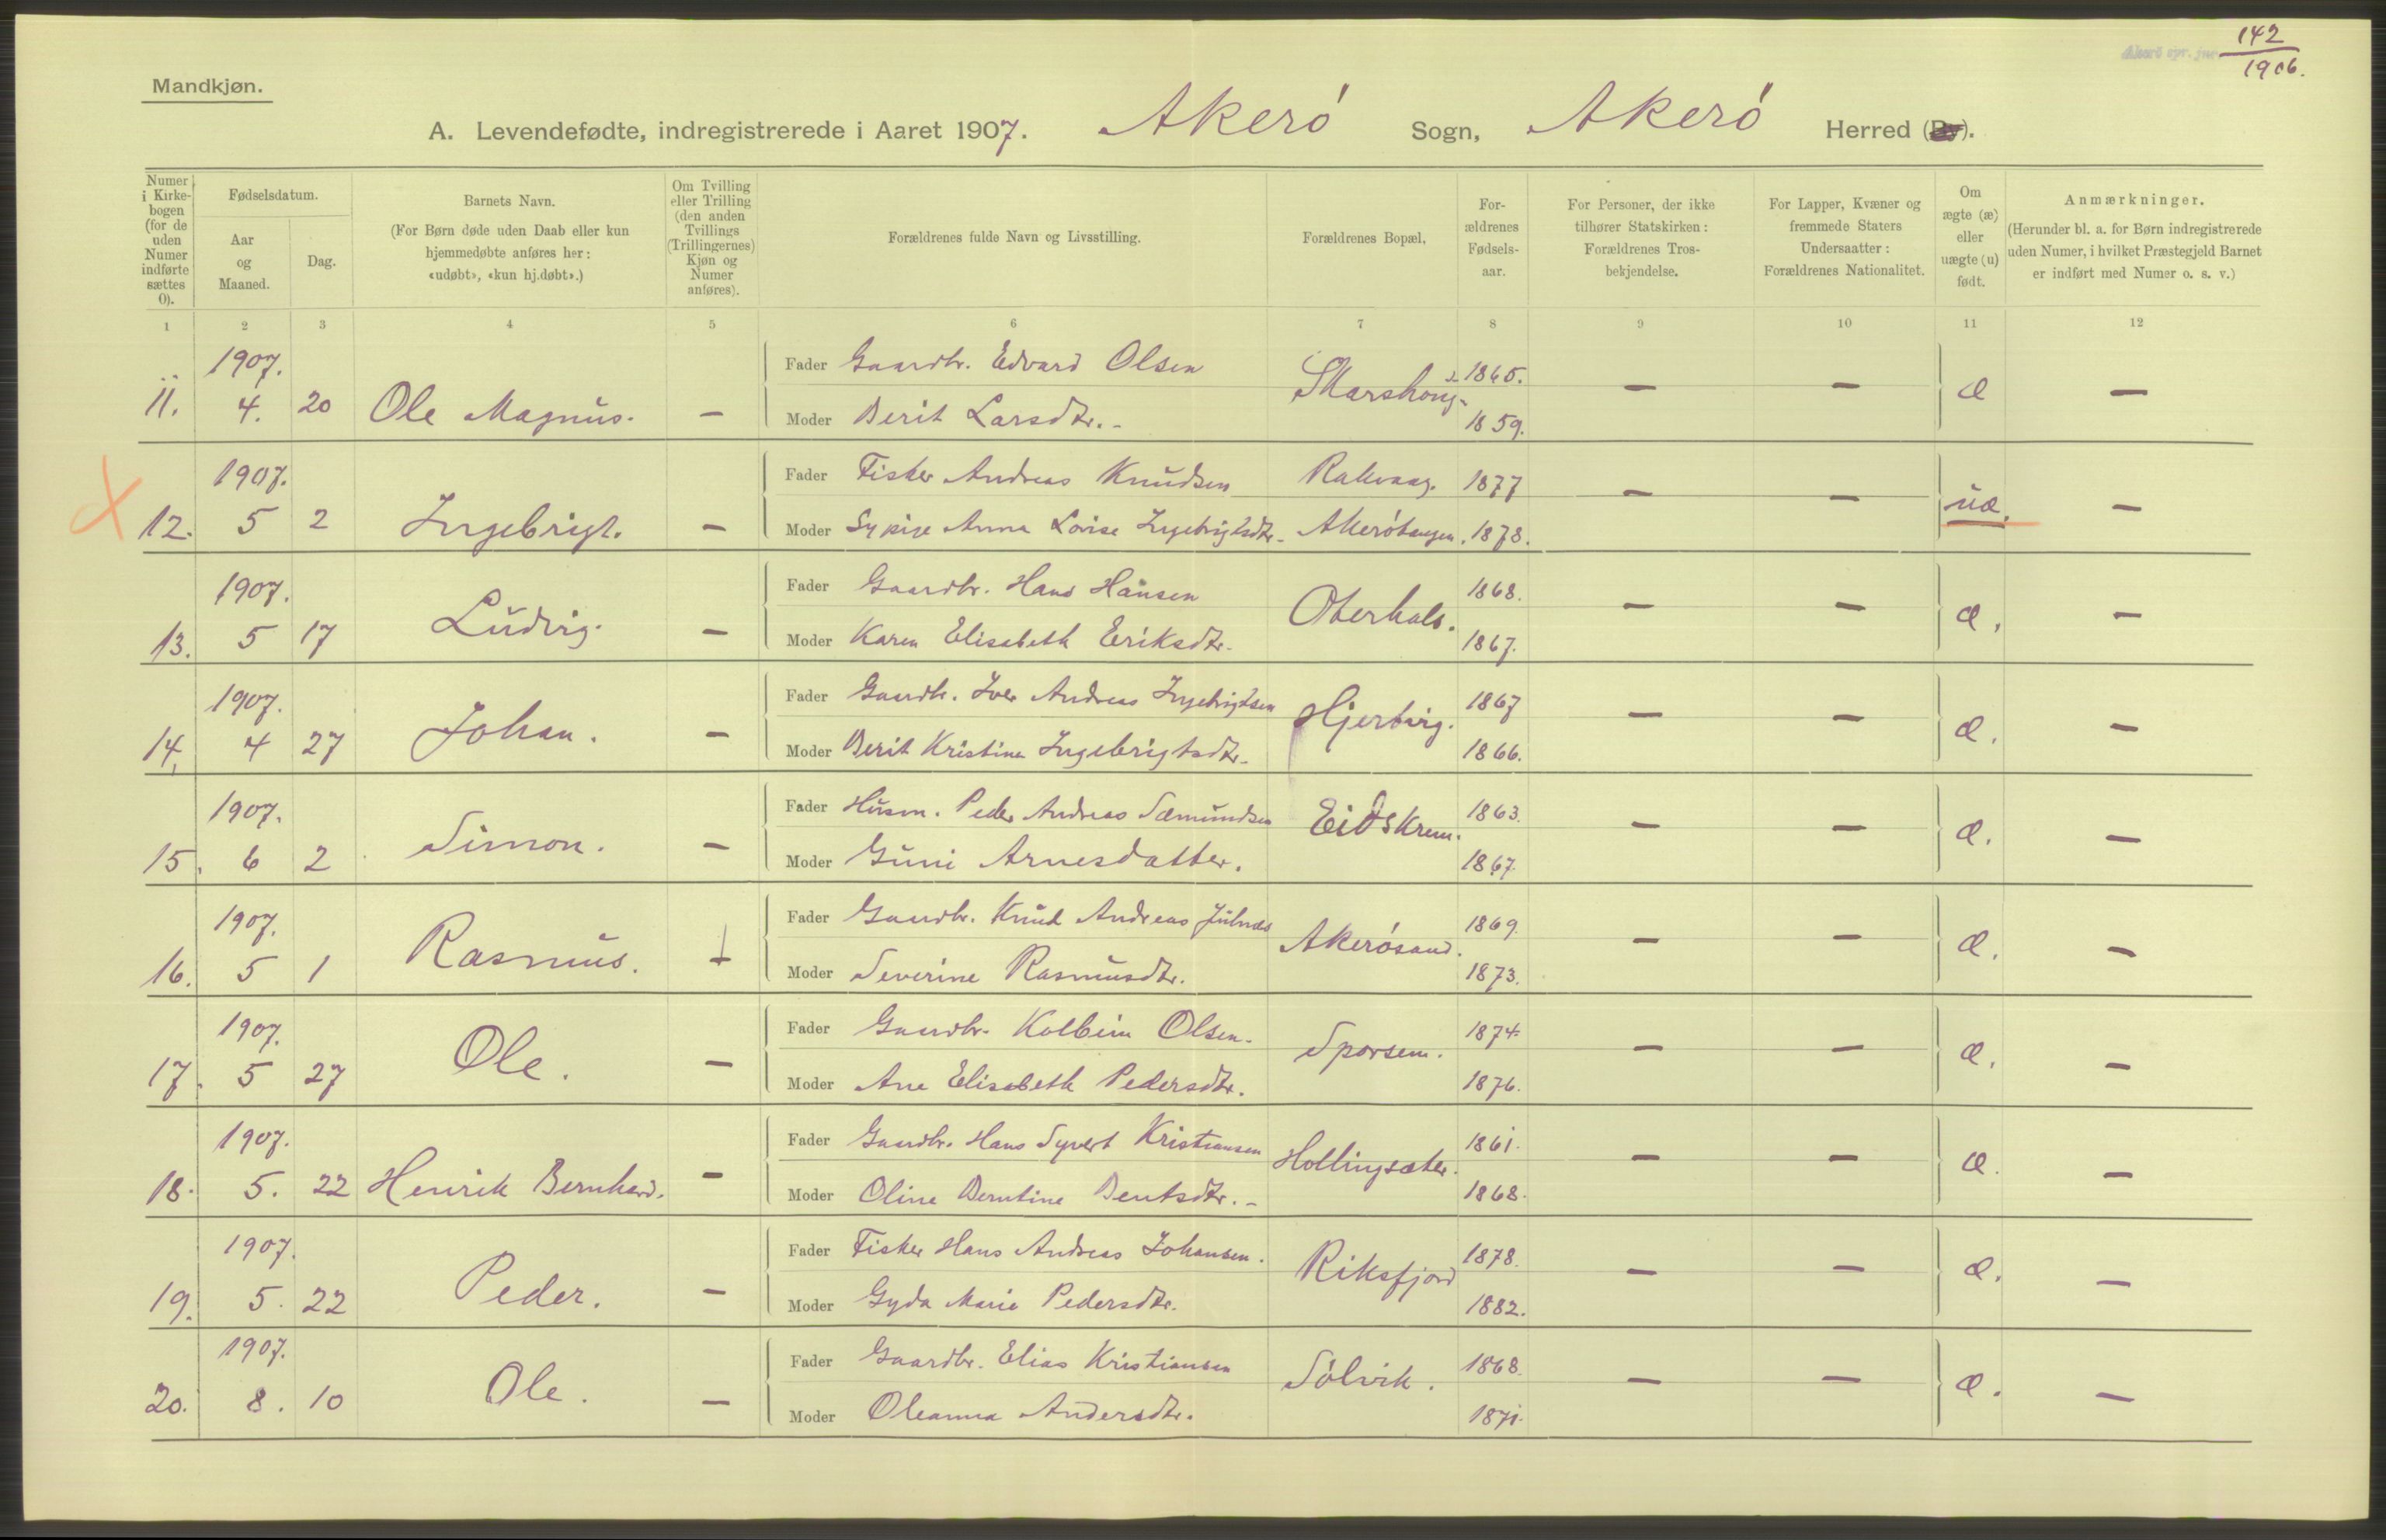 142
1906.
Mandkjøn.
A. Levendefødte, indregistrerede i Aaret 1907. Akerö Sogn, Akerö Herred (By).
Numer i Kirkebogen (for de uden Numer indførte sættes 0).
Fødselsdatum.
Aar og Maaned.
Dag.
Barnets Navn.
(For Børn døde uden Daab eller kun hjemmedøbte anføres her: «udøbt», «kun hj.døbt».)
Om Tvilling eller Trilling (den anden Tvillings (Trillingernes) Kjøn og Numer anføres).
Forældrenes fulde Navn og Livsstilling.
Forældrenes Bopæl.
Forældrenes Fødselsaar.
For Personer, der ikke tilhører Statskirken: Forældrenes Trosbekjendelse.
For Lapper, Kvæner og fremmede Staters Undersaatter: Forældrenes Nationalitet.
Om ægte (æ) eller uægte (u) født.
Anmærkninger.
(Herunder bl. a. for Børn indregistrerede uden Numer, i hvilket Præstegjeld Barnet er indført med Numer o. s. v.)
1 2 3 4 5 6 7 8 9 10 11 12
1907.
Fader Gaardbr. Edvard Olsen 1865.
11. 4. 20 Ole Magnus. — Skarshoug. — — æ —
Moder Berit Larsdtr. - 1859.
1907.
Fader Fisker Andreas Knudsen Rakvaag. 1877
12. 5 2 Ingebrigt. — — — uæ. —
Moder Sypige Anna Lovise Ingebrigtsdtr. Akerötangen. 1878.
1907.
Fader Gaardbr. Hans Hansen 1868.
13. 5 17 Ludvig. — Oterhals. — — æ. —
Moder Karen Elisabeth Eriksdtr. 1867.
1907.
Fader Gaardbr. Iver Andreas Ingebrigtsen 1867
14. 4 27 Johan. — Hjertvig. — — æ. —
Moder Berit Kristine Ingebrigtsdtr. 1866.
1907.
Fader Husm. Peder Andreas Sæmundsen 1863.
15. 6 2 Simon. — Eidskrem. — — æ. —
Moder Guni Arnesdatter. 1867.
1907.
Fader Gaardbr. Knud Andreas Julnæs 1869.
16. 5 1 Rasmus. — Akerösand. — — æ. —
Moder Severine Rasmusdtr. 1873.
1907.
Fader Gaardbr. Kolbein Olsen. 1874.
17. 5 27 Ole. — Sporsem. — — æ. —
Moder Ane Elisabeth Pedersdtr. 1876.
1907.
Fader Gaardbr. Hans Syvert Kristiansen 1861.
18. 5. 22 Henrik Bernhard. — Hollingsæter. — — æ. —
Moder Oline Berntine Bentsdtr. - 1868.
1907.
Fader Fisker Hans Andreas Johansen. 1878.
19. 5. 22 Peder. — Riksfjord — — æ. —
Moder Gyda Marie Pedersdtr. 1882.
1907.
Fader Gaardbr. Elias Kristiansen 1868.
20. 8. 10 Ole. — Sölvik. — — æ. —
Moder Oleanna Andersdtr. 1871.